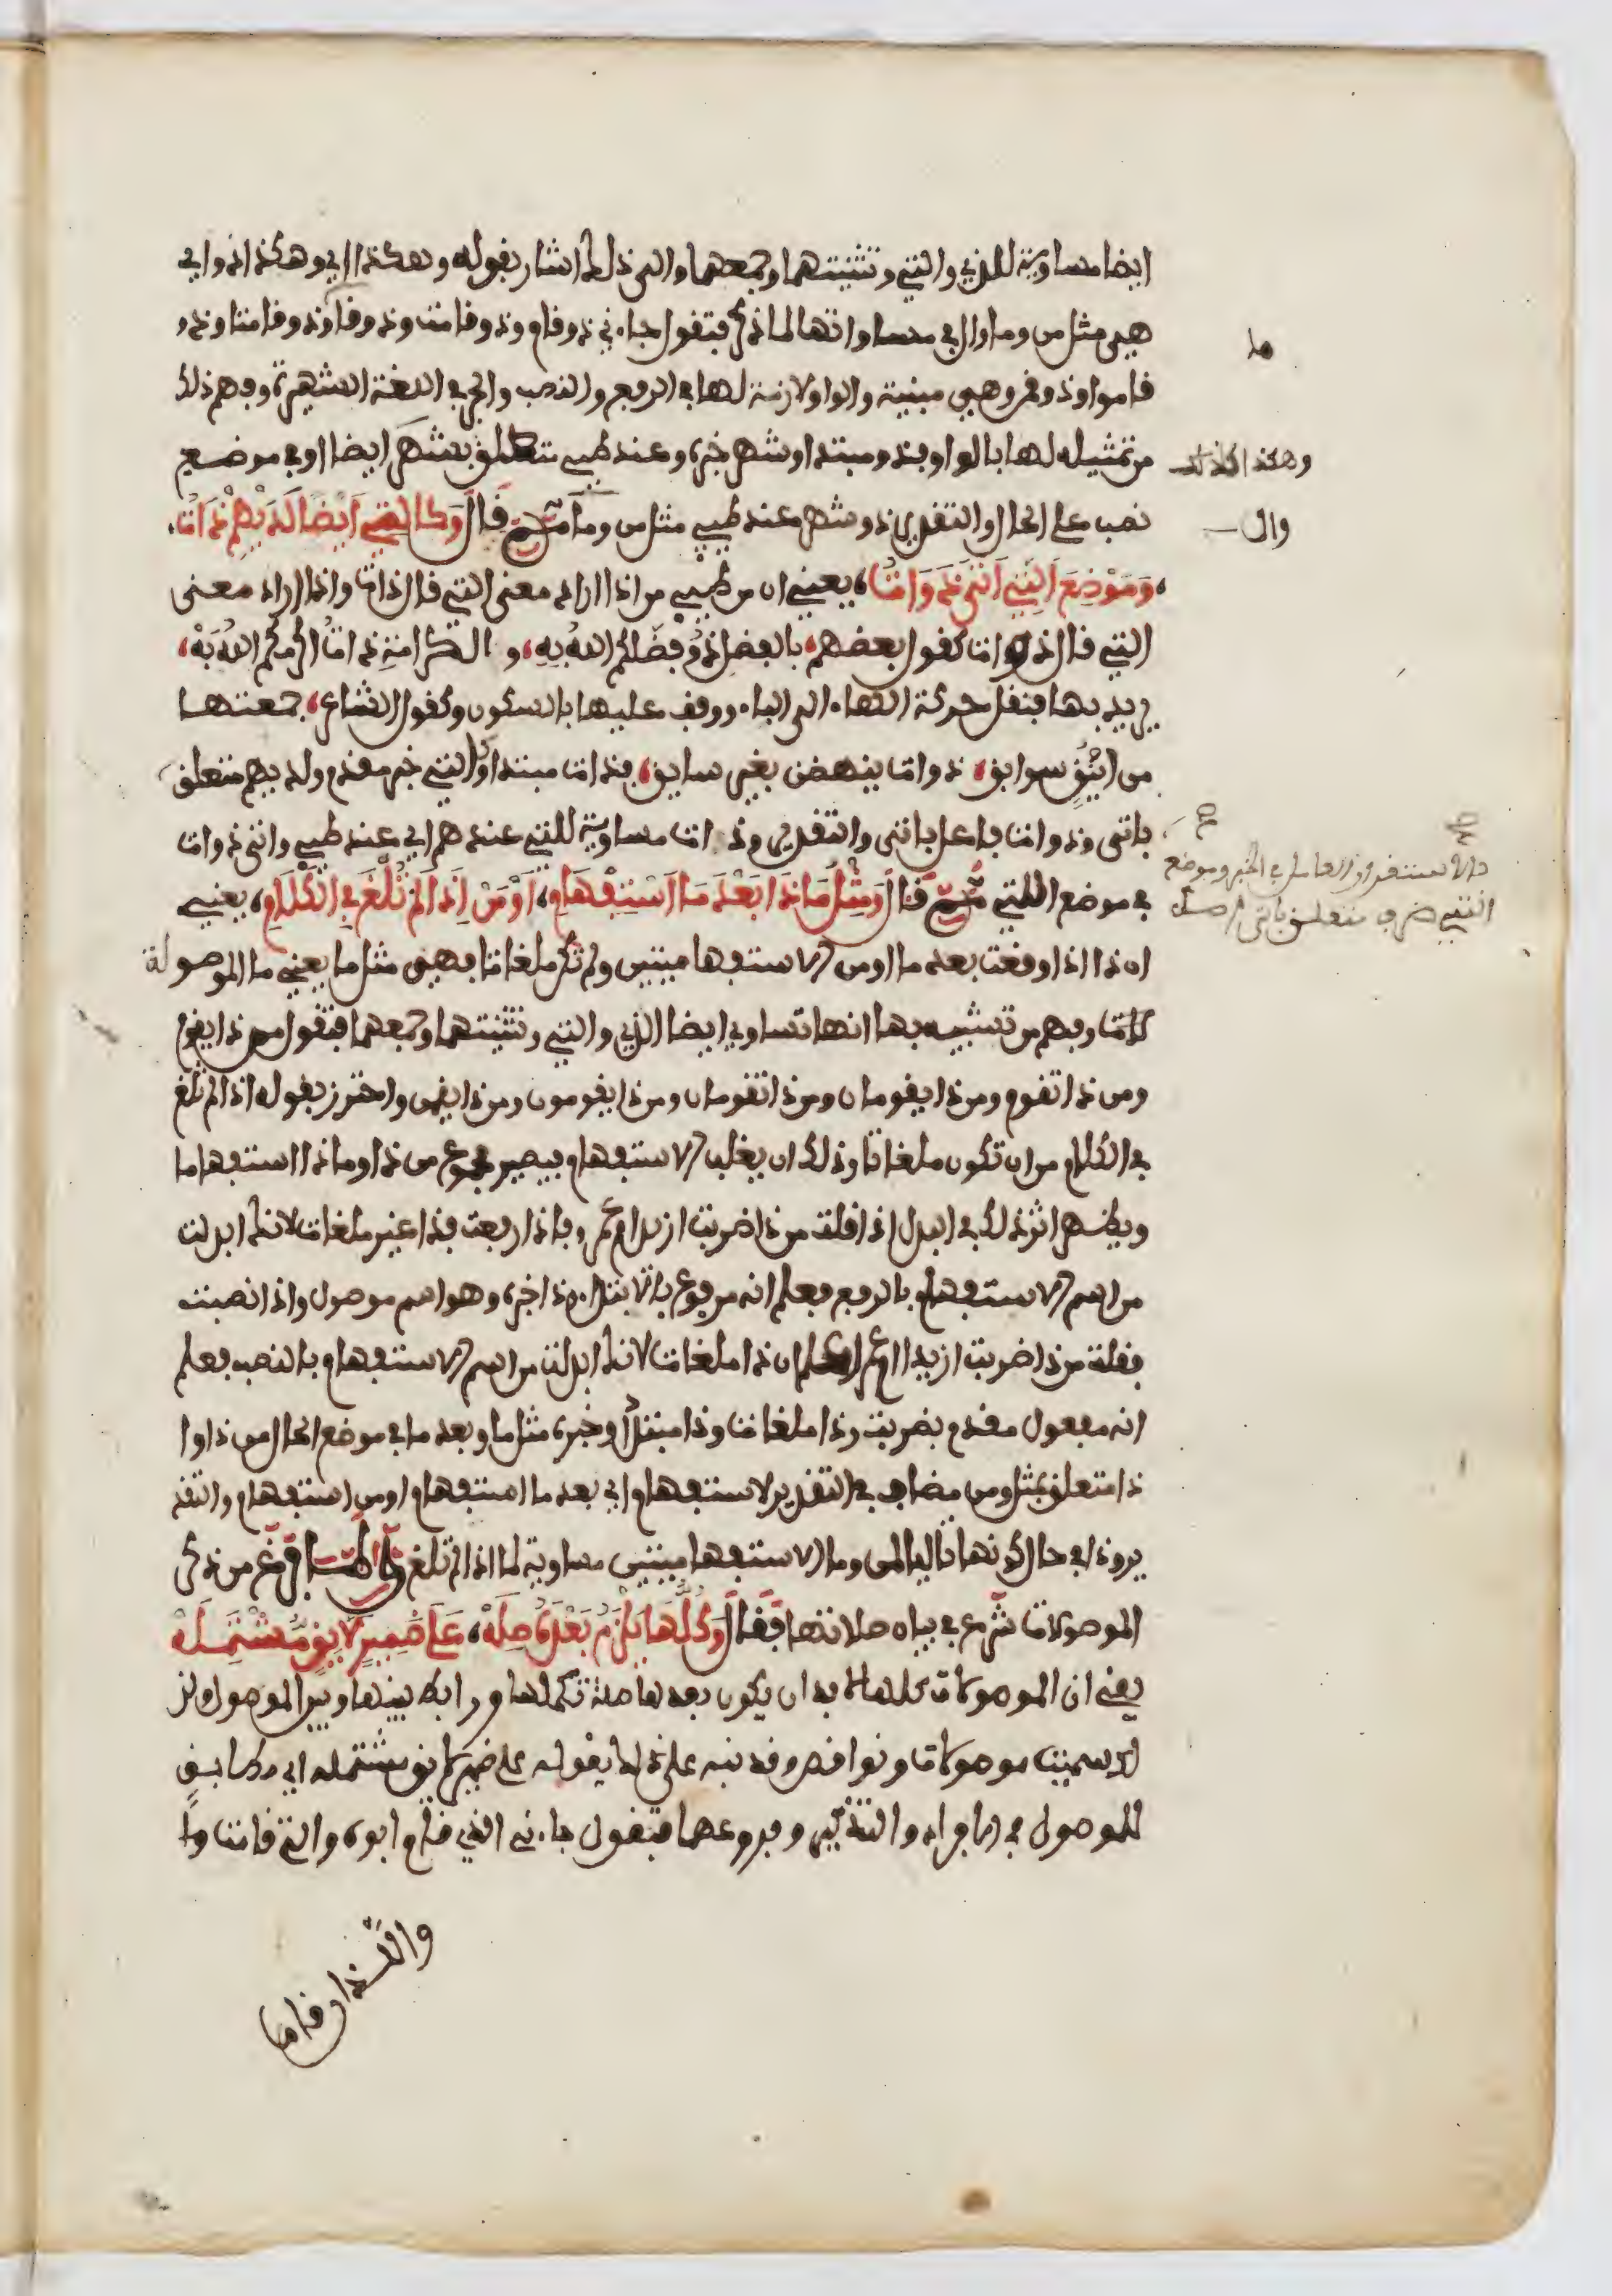 ايضا مساوية للذي والتي وتثنيتهما وجمعهما والى ذلك اشار بقوله وهكذا اي وهكذا ذو اي
هي مثل من وما وال في مساواتها لما ذكر فتقول جاءني ذو قام وذو قامت وذو قاما وذو قامتا وذو
قاموا وذو قمن وهي مبنية والواو لازمة لها في الرفع والنصب والجر في اللغة الشهيرة وفهم ذلك
من تمثيله لها بالواو فذو مبتدا وشهر خبره وعند طيئ متعلق بشهر ايضا او في موضع
نصب على الحال والتقدير ذو شهر عند طيئ مثل من وما ثم قال وكالتي ايضا لديهم ذات
وموضع اللتي اتى ذوات يعني ان من طيئ من اذا اراد معنى التي قال ذات واذا اراد معنى
التي قال ذوات كقول بعضهم بالفضل ذو فضلكم الله به والكرامة ذات اكرمكم الله به
يريد بها فنقل حركة الهاء الى الباء ووقف عليها بالسكون وكقول الشاعر جمعتها
من اينق سوابق ذوات ينهضن بغير سايق فذات مبتدا وكالتي خبر مقدم ولديهم متعلق
باتى وذوات فاعل باتى والتقدير وذات مساوية للتي عندهم اي عند طيئ واتى ذوات
في موضع اللتي ثم قال ومثل ما ذا بعد ما استفهام او من اذا لم تلغ في الكلام يعني
ان ذا اذا وقعت بعد ما او من الاستفهاميتين ولم تكن ملغات فهي مثل ما يعني ما الموصولة
وفهم من تشبيهه بها انها تساوي ايضا الذي والتي وتثنيتهما وجمعهما فتقول من ذا يقوم
ومن ذا تقوم ومن ذا يقومان ومن ذا تقومان ومن ذا يقومون ومن ذا يقمن واحترز بقوله اذا لم تلغ
في الكلام من ان تكون ملغاتا وذلك ان يغلب الاستفهام فيصير مجموع من ذا وماذا استفهاما
ويظهر اثر ذلك في البدل اذا قلت من ذا ضربت ازيد ام عمرو فاذا رفعت فذا غير ملغات لانك ابدلت
من اسم الاستفهام بالرفع فعلم انه مرفوع بالابتداء وذا خبره وهو اسم موصول واذا نصبت
فقلت من ذا ضربت ازيدا ام عمرا علم ان ذا ملغات لانك ابدلت من اسم الاستفهام بالنصب فعلم
انه مفعول مقدم بضربت وذا ملغات وذا مبتدا وخبره مثل ما وبعد ما في موضع الحال من ذا وا
ذا متعلق بمثل ومن مضاف في التقدير لاستفهام اي بعد ما استفهام او من استفهام والتقد
ير وذا في حال كونها تاليا لمن وما الاستفهاميتين مساوية لما اذا لم تلغ ولما فرغ من ذكر
الموصولات شرع في بيان صلاتها فقال وكلها يلزم بعده صله على ضمير لايق مشتمله
يعني ان الموصولات كلها لا بد ان يكون بعدها صلة تكملها ورابط بينها وبين الموصول ولذ
لك سميت موصولات ونواقص وقد نبه على ذلك بقوله على ضمير لايق مشتمله اي مطابق
للموصول في الافراد والتذكير وفروعهما فتقول جاءني الذي قام ابوه والتي قامت وا
واللذان قاما
ما
وهكذا
وال
والاستقرار العامل في الخبر وموضع
اللتي ظرف متعلق باتى